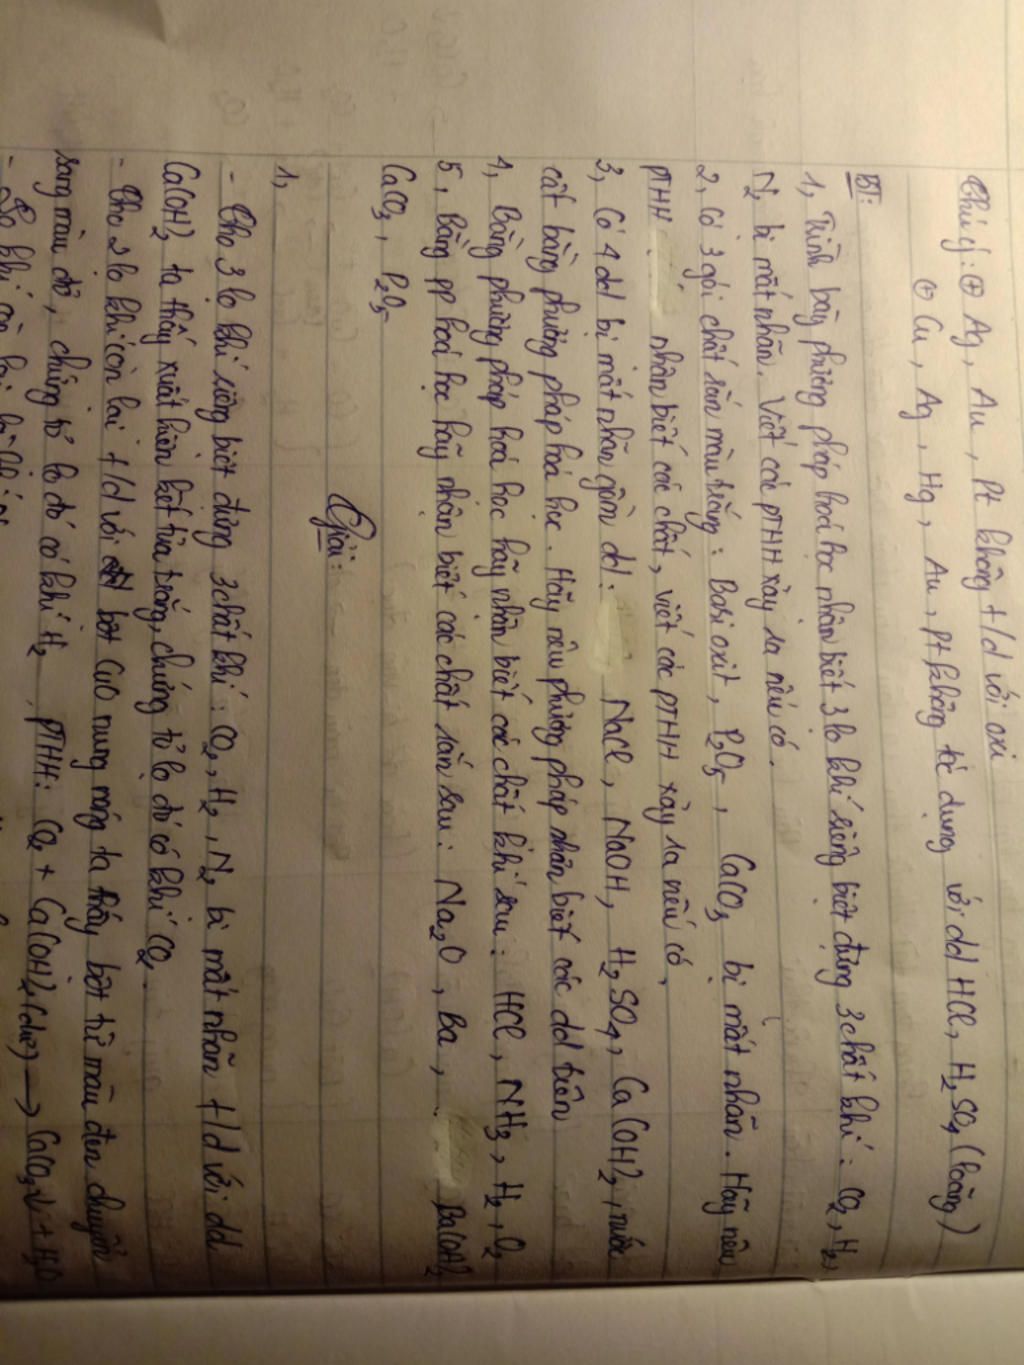 Chú ý: ⊕ Ag, Au, Pt không t/d với oxi
⊕ Cu, Ag, Hg, Au, Pt không tác dụng với dd HCl, H₂SO₄ (loãng)
BT:
1, Trình bày phương pháp hoá học nhận biết 3 lọ khí riêng biệt đựng 3 chất khí: CO₂, H₂,
N₂ bị mất nhãn. Viết các PTHH xảy ra nếu có.
2, Có 3 gói chất rắn màu trắng: Bari oxit, P₂O₅, CaCO₃ bị mất nhãn. Hãy nêu
PTHH nhận biết các chất, viết các PTHH xảy ra nếu có.
3, Có 4 dd bị mất nhãn gồm dd: NaCl, NaOH, H₂SO₄, Ca(OH)₂, nước
cất bằng phương pháp hoá học. Hãy nêu phương pháp nhận biết các dd trên
4, Bằng phương pháp hoá học hãy nhận biết các chất khí sau: HCl, NH₃, H₂, O₂
5, Bằng pp hoá học hãy nhận biết các chất rắn sau: Na₂O, Ba, Ba(OH)₂
CaCO₃, P₂O₅
Giải:
1,
- Cho 3 lọ khí riêng biệt đựng 3 chất khí: CO₂, H₂, N₂ bị mất nhãn t/d với dd
Ca(OH)₂ ta thấy xuất hiện kết tủa trắng, chứng tỏ lọ đó có khí CO₂.
- Cho 2 lọ khí còn lại t/d với bột CuO nung nóng ta thấy bột từ màu đen chuyển
sang màu đỏ, chứng tỏ lọ đó có khí H₂ PTHH: CO₂ + Ca(OH)₂ (dư) → CaCO₃↓ + H₂O
- Lọ khí còn lại là